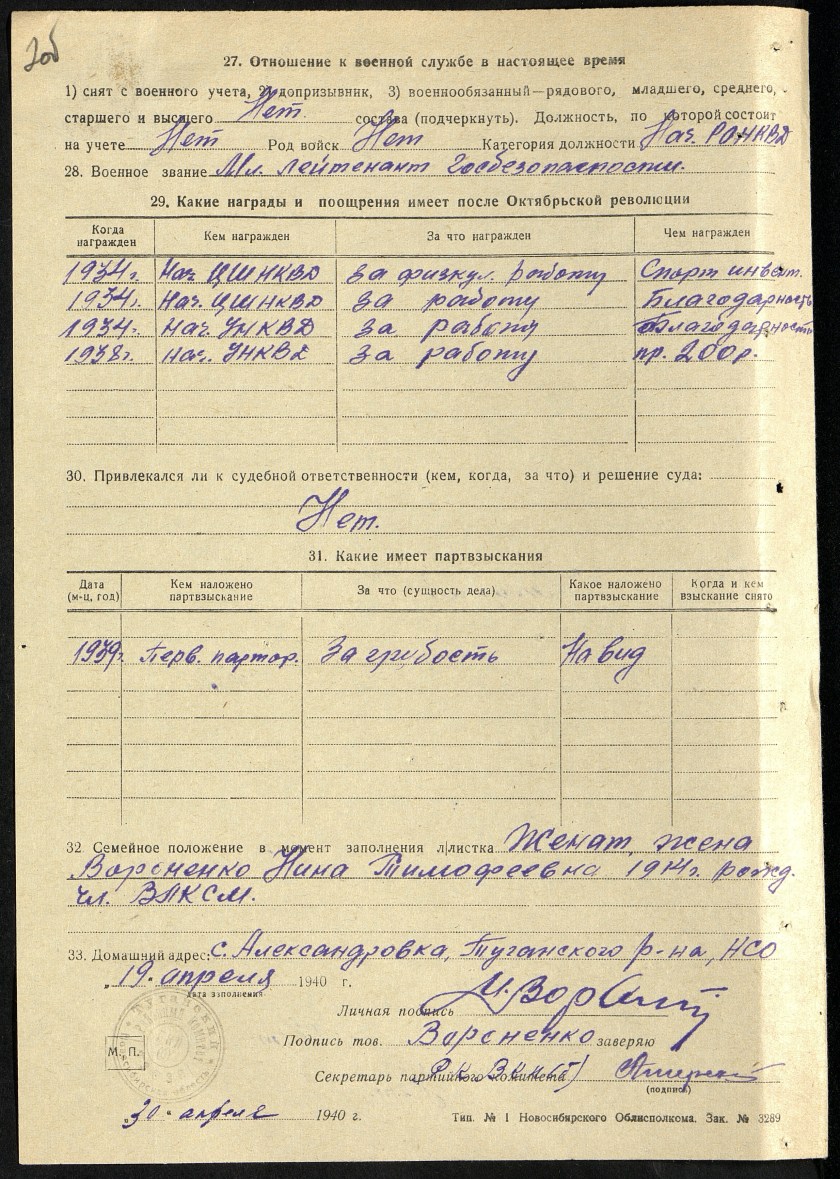 27. Отношение к военной службе в настоящее время
1) снят с военного учета, 2) допризывник, 3) военнообязанный—рядового, младшего, среднего,
старшего и высшего Нет. состава (подчеркнуть). Должность, по которой состоит
на учете Нет Род войск Нет Категория должности Нач. РОНКВД
28. Военное звание Мл. лейтенант Госбезопасности.
29. Какие награды и поощрения имеет после Октябрьской революции
Когда награжден Кем награжден За что награжден Чем награжден
1934г. Нач. ЦШНКВД за физкул. работу Спорт инвент.
1934г. Нач. ЦШНКВД за работу Благодарность
1934г. Нач. УНКВД за работу Благодарность
1938г. Нач. УНКВД за работу пр. 200р.
30. Привлекался ли к судебной ответственности (кем, когда, за что) и решение суда:
Нет.
31. Какие имеет партвзыскания
Дата (м-ц, год) Кем наложено партвзыскание За что (сущность дела) Какое наложено партвзыскание Когда и кем взыскание снято
1939г. Перв. партор. За грубость На вид
32 Семейное положение в момент заполнения л/листка Женат, жена
Вороненко Нина Тимофеевна 1914г. рожд.
чл. ВЛКСМ.
33. Домашний адрес: с. Александровка, Туганского р-на, НСО
„19" апреля 1940 г.
дата заполнения
Личная подпись
Подпись тов. Вороненко заверяю
М. П.
Секретарь партийного комитета
(подпись)
„30" апреля 1940 г. Тип. № 1 Новосибирского Облисполкома. Зак. № 3289